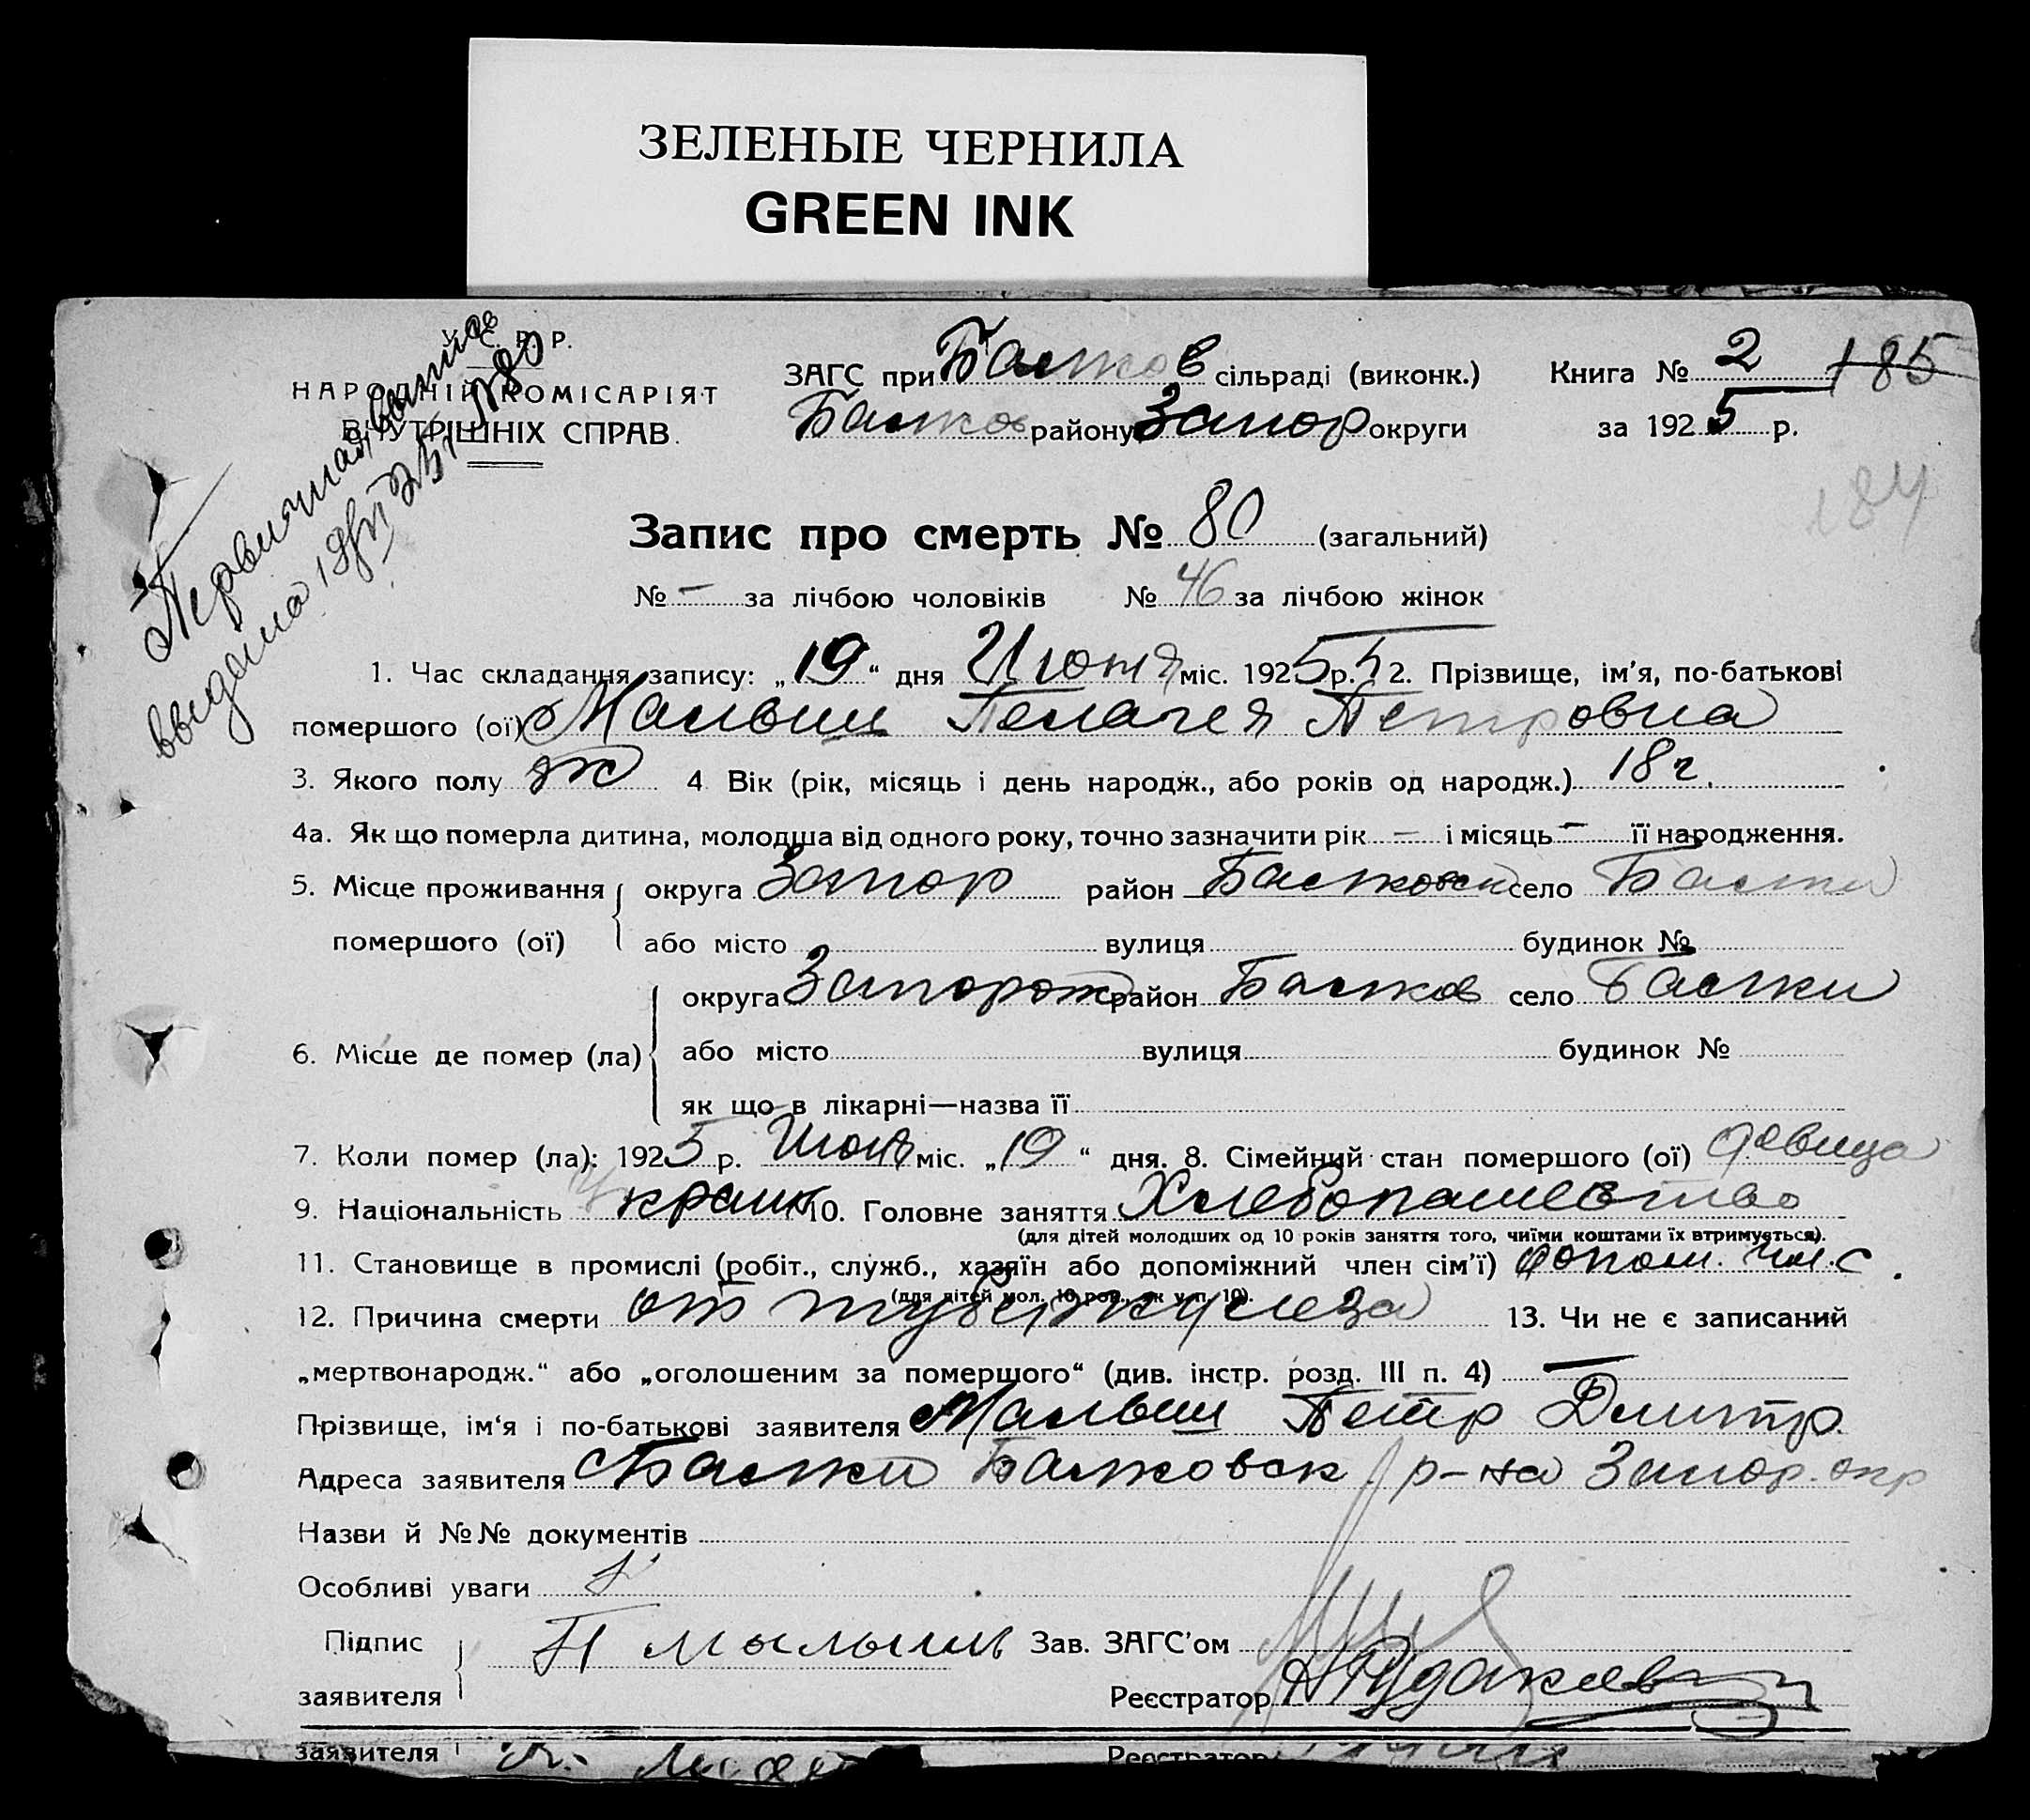 ЗЕЛЕНЫЕ ЧЕРНИЛА
GREEN INK
У.С.Р.Р.
НАРОДНІЙ КОМІСАРІЯТ
ВНУТРІШНІХ СПРАВ.
Первичная выпись
выдана 19/VI 25 г. №80
ЗАГС при Балков сільраді (виконк.) Книга № 2 185
Балков району Запор округи за 1925 р.
184
Запис про смерть № 80 (загальний)
№ – за лічбою чоловіків № 46 за лічбою жінок
1. Час складання запису: „19“ дня Июня міс. 1925 р. 2. Прізвище, ім'я, по-батькові
помершого (ої) Малыш Пелагея Петровна
3. Якого полу ж 4 Вік (рік, місяць і день народж., або років од народж.) 18 г.
4а. Як що померла дитина, молодша від одного року, точно зазначити рік – і місяць – її народження.
5. Місце проживання округа Запор район Балковск село Балки
помершого (ої) або місто вулиця будинок №
округа Запорож район Балков село Балки
6. Місце де помер (ла) або місто вулиця будинок №
як що в лікарні—назва її
7. Коли помер (ла): 1925 р. Июнь міс. „19“ дня. 8. Сімейний стан помершого (ої) девица
9. Національність Украин 10. Головне заняття Хлебопашество
(для дітей молодших од 10 років заняття того, чиїми коштами їх втримується).
11. Становище в промислі (робіт., служб., хазяїн або допоміжний член сім'ї) допом. чл. с.
(для дітей мол. 10 рок., як у п. 10).
12. Причина смерти от туберкулеза 13. Чи не є записаний
„мертвонародж.“ або „оголошеним за помершого“ (див. інстр. розд. III п. 4) –
Прізвище, ім'я і по-батькові заявителя Малыш Петр Дмитр.
Адреса заявителя Балки Балковск р-на Запор. окр
Назви й №№ документів
Особливі уваги
Підпис П Малыш Зав. ЗАГС'ом
заявителя Реєстратор
заявителя Реєстратор